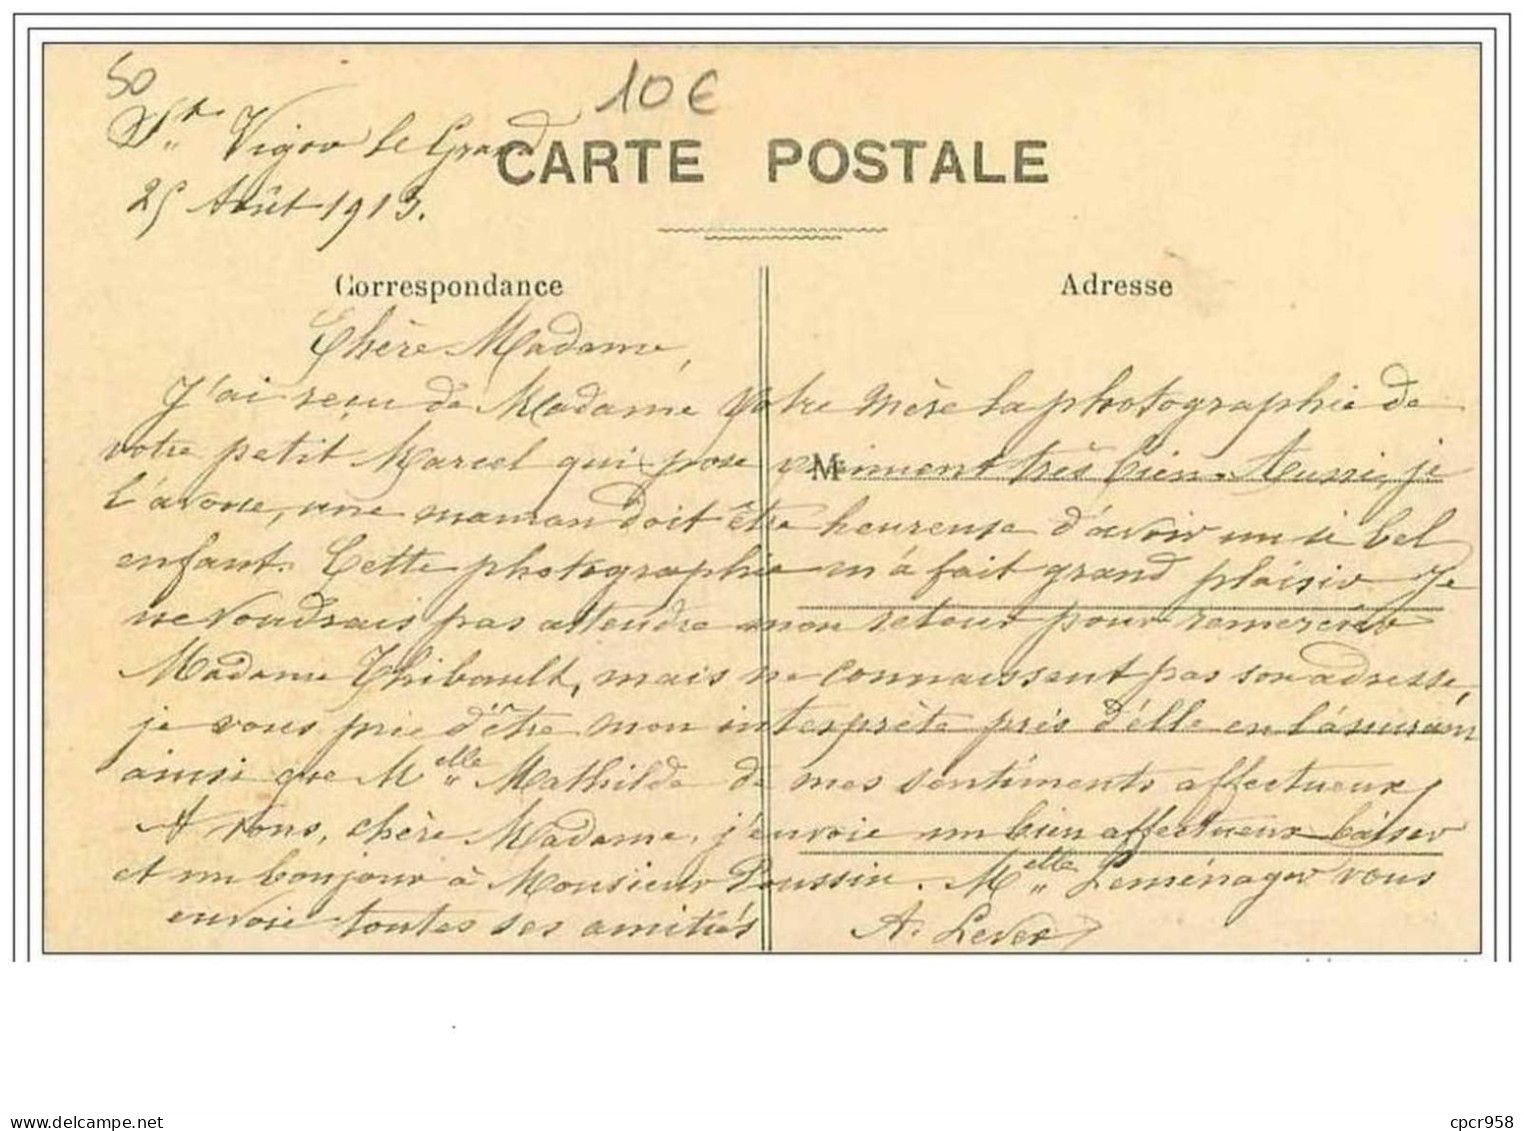 50
10€
St Vigor le Grand
CARTE POSTALE
25 Août 1913.
Correspondance
Adresse
Chère Madame,
J'ai reçu de Madame votre mère la photographie de
votre petit Marcel qui pose vraiment très bien. Aussi, je
M
l'avoue, une maman doit être heureuse d'avoir un si bel
enfant. Cette photographie m'a fait grand plaisir. Je
ne voudrais pas attendre mon retour pour remercier
Madame Thibault, mais ne connaissant pas son adresse,
je vous prie d'être mon interprète près d'elle en l'assurant
ainsi que Melle Mathilde de mes sentiments affectueux,
A vous, chère Madame, j'envoie un bien affectueux baiser
et un bonjour à Monsieur Poussin. Melle Leménager vous
envoie toutes ses amitiés
A.
cpcr958